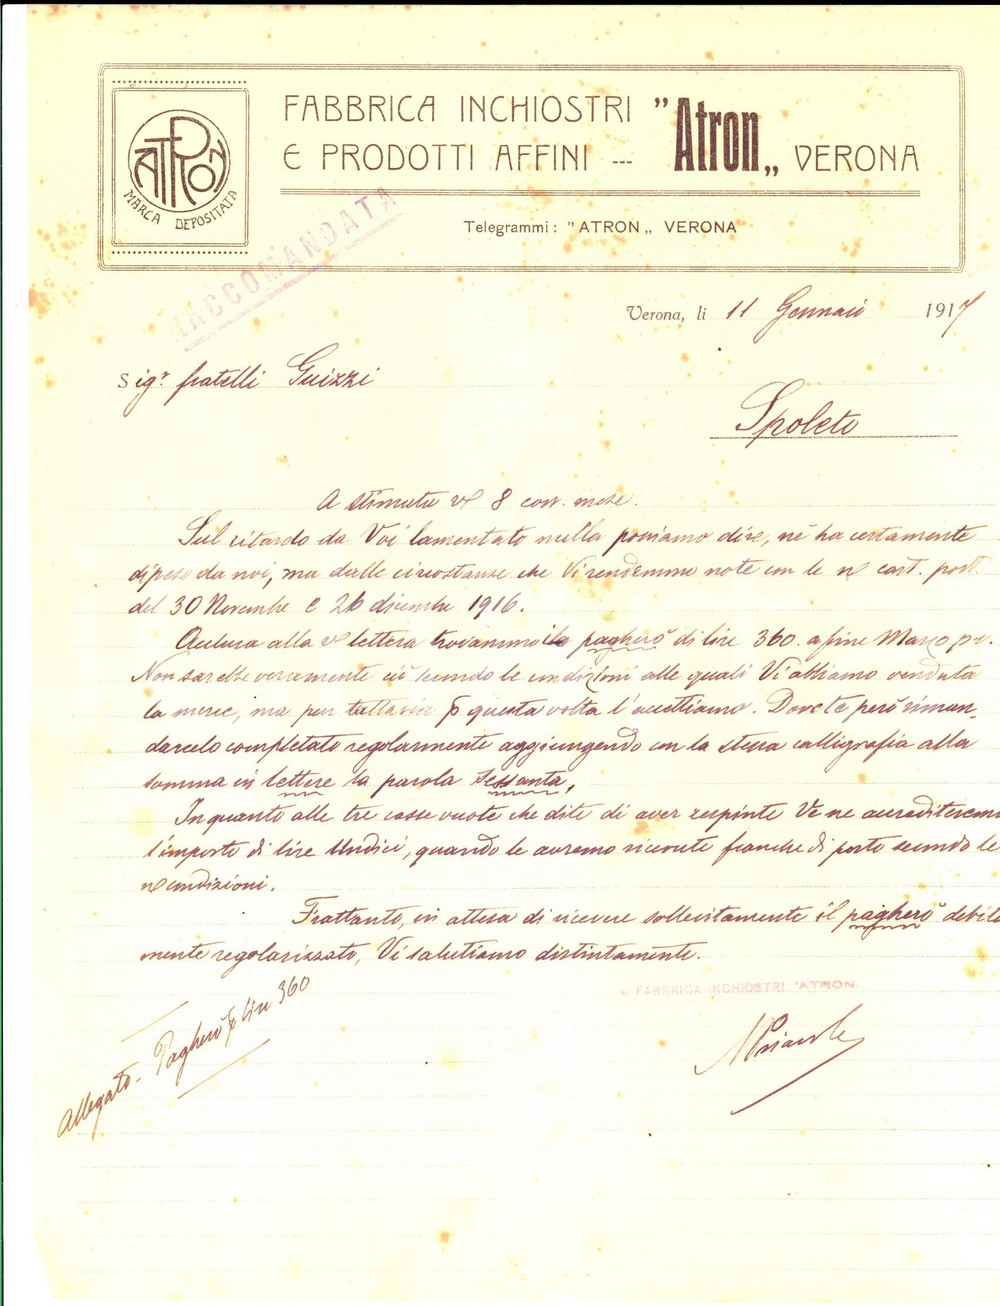 FABBRICA INCHIOSTRI "Atron„ VERONA
E PRODOTTI AFFINI ---
ATRON
MARCA DEPOSITATA
Telegrammi: "ATRON„ VERONA
RACCOMANDATA
Verona, li 11 Gennaio 1917
Sigr. fratelli Guizzi
Spoleto
A stimata vs 8 corr. mese.
Sul ritardo da Voi lamentato nulla possiamo dire, nè ha certamente
dipeso da noi, ma dalle circostanze che Vi rendemmo note con le ns cart. post.
del 30 Novembre e 26 dicembre 1916.
Acclusa alla vs lettera trovammo il pagherò di lire 360. a fine Marzo p.v.
Non sarebbe veramente ciò secondo le condizioni alle quali Vi abbiamo venduta
la merce, ma pur tuttavia p questa volta l'accettiamo. Dovete però riman-
darcelo completato regolarmente aggiungendo con la stessa calligrafia alla
somma in lettere la parola sessanta,
In quanto alle tre casse vuote che dite di aver respinte Ve ne accrediteremo
l'importo di lire Undici, quando le avremo ricevute franche di porto secondo le
ns condizioni.
Frattanto, in attesa di ricevere sollecitamente il pagherò debita
mente regolarizzato, Vi salutiamo distintamente.
FABBRICA INCHIOSTRI "ATRON„
Allegato - Pagherò p Lire 360